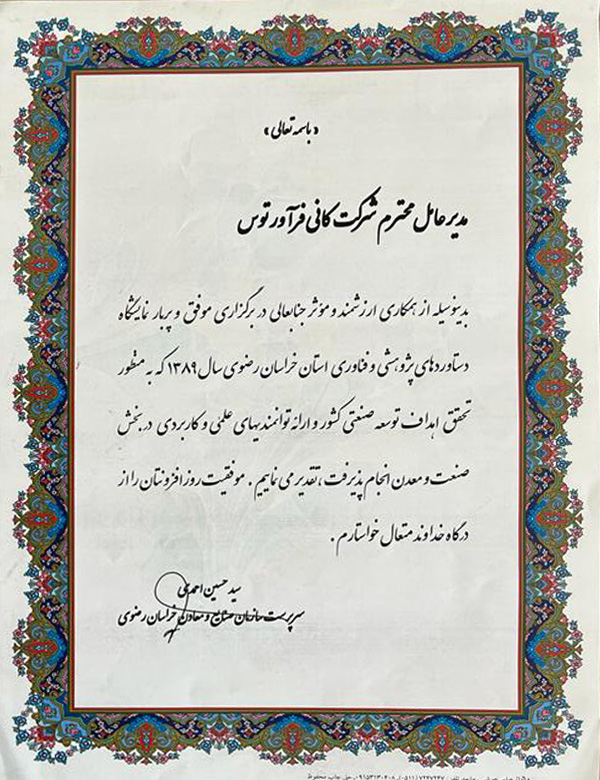 « باسمه تعالی »
مدیر عامل محترم شرکت کانی فرآور توس
بدینوسیله از همکاری ارزشمند و مؤثر جنابعالی در برگزاری موفق و پربار نمایشگاه
دستاوردهای پژوهشی و فناوری استان خراسان رضوی سال ۱۳۸۹ که به منظور
تحقق اهداف توسعه صنعتی کشور و ارائه توانمندیهای علمی و کاربردی در بخش
صنعت و معدن انجام پذیرفت ، تقدیر می نماییم . موفقیت روز افزونتان را از
درگاه خداوند متعال خواستارم .
سید حسین احمدی
سرپرست سازمان صنایع و معادن خراسان رضوی